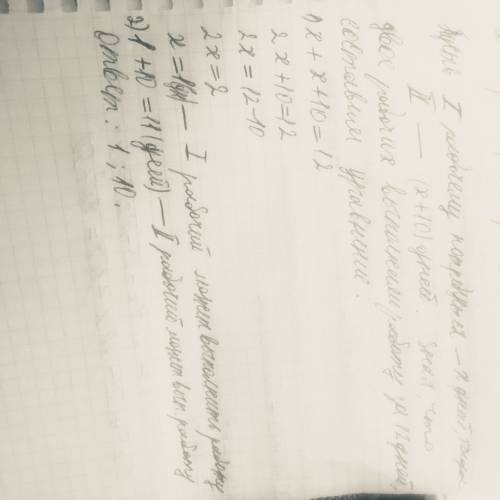 Пусть I рабочему потребуется – x дней, тогда
II — (x+10) дней. Зная, что
двое рабочих выполнили работу за 12 дней,
составим уравнение.
1) x + x + 10 = 12
2x + 10 = 12
2x = 12 - 10
2x = 2
x = 1(д) — I рабочий может выполнить работу
2) 1 + 10 = 11 (дней) — II рабочий может вып. работу
Ответ: 1; 10.